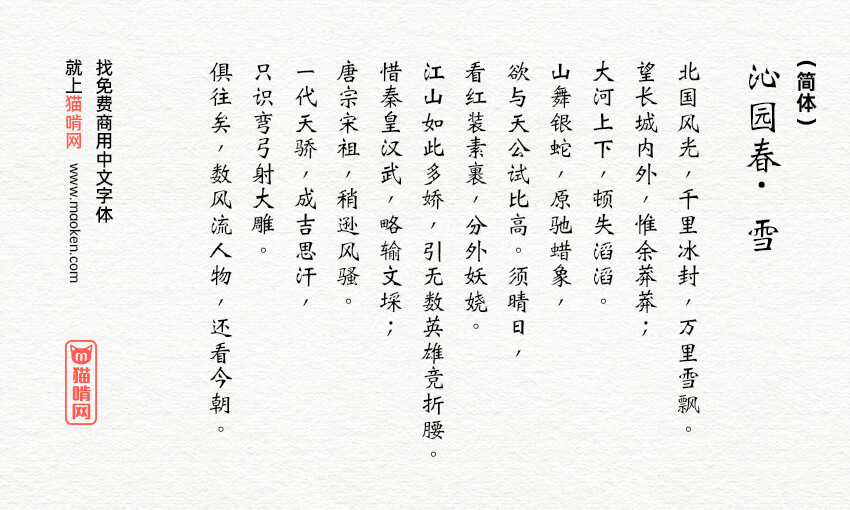 （简体）
沁园春·雪
北国风光，千里冰封，万里雪飘。
望长城内外，惟余莽莽；
大河上下，顿失滔滔。
山舞银蛇，原驰蜡象，
欲与天公试比高。须晴日，
看红装素裹，分外妖娆。
江山如此多娇，引无数英雄竞折腰。
惜秦皇汉武，略输文埰；
唐宗宋祖，稍逊风骚。
一代天骄，成吉思汗，
只识弯弓射大雕。
俱往矣，数风流人物，还看今朝。
找免费商用中文字体
就上猫啃网 www.mooken.com
m
猫啃网